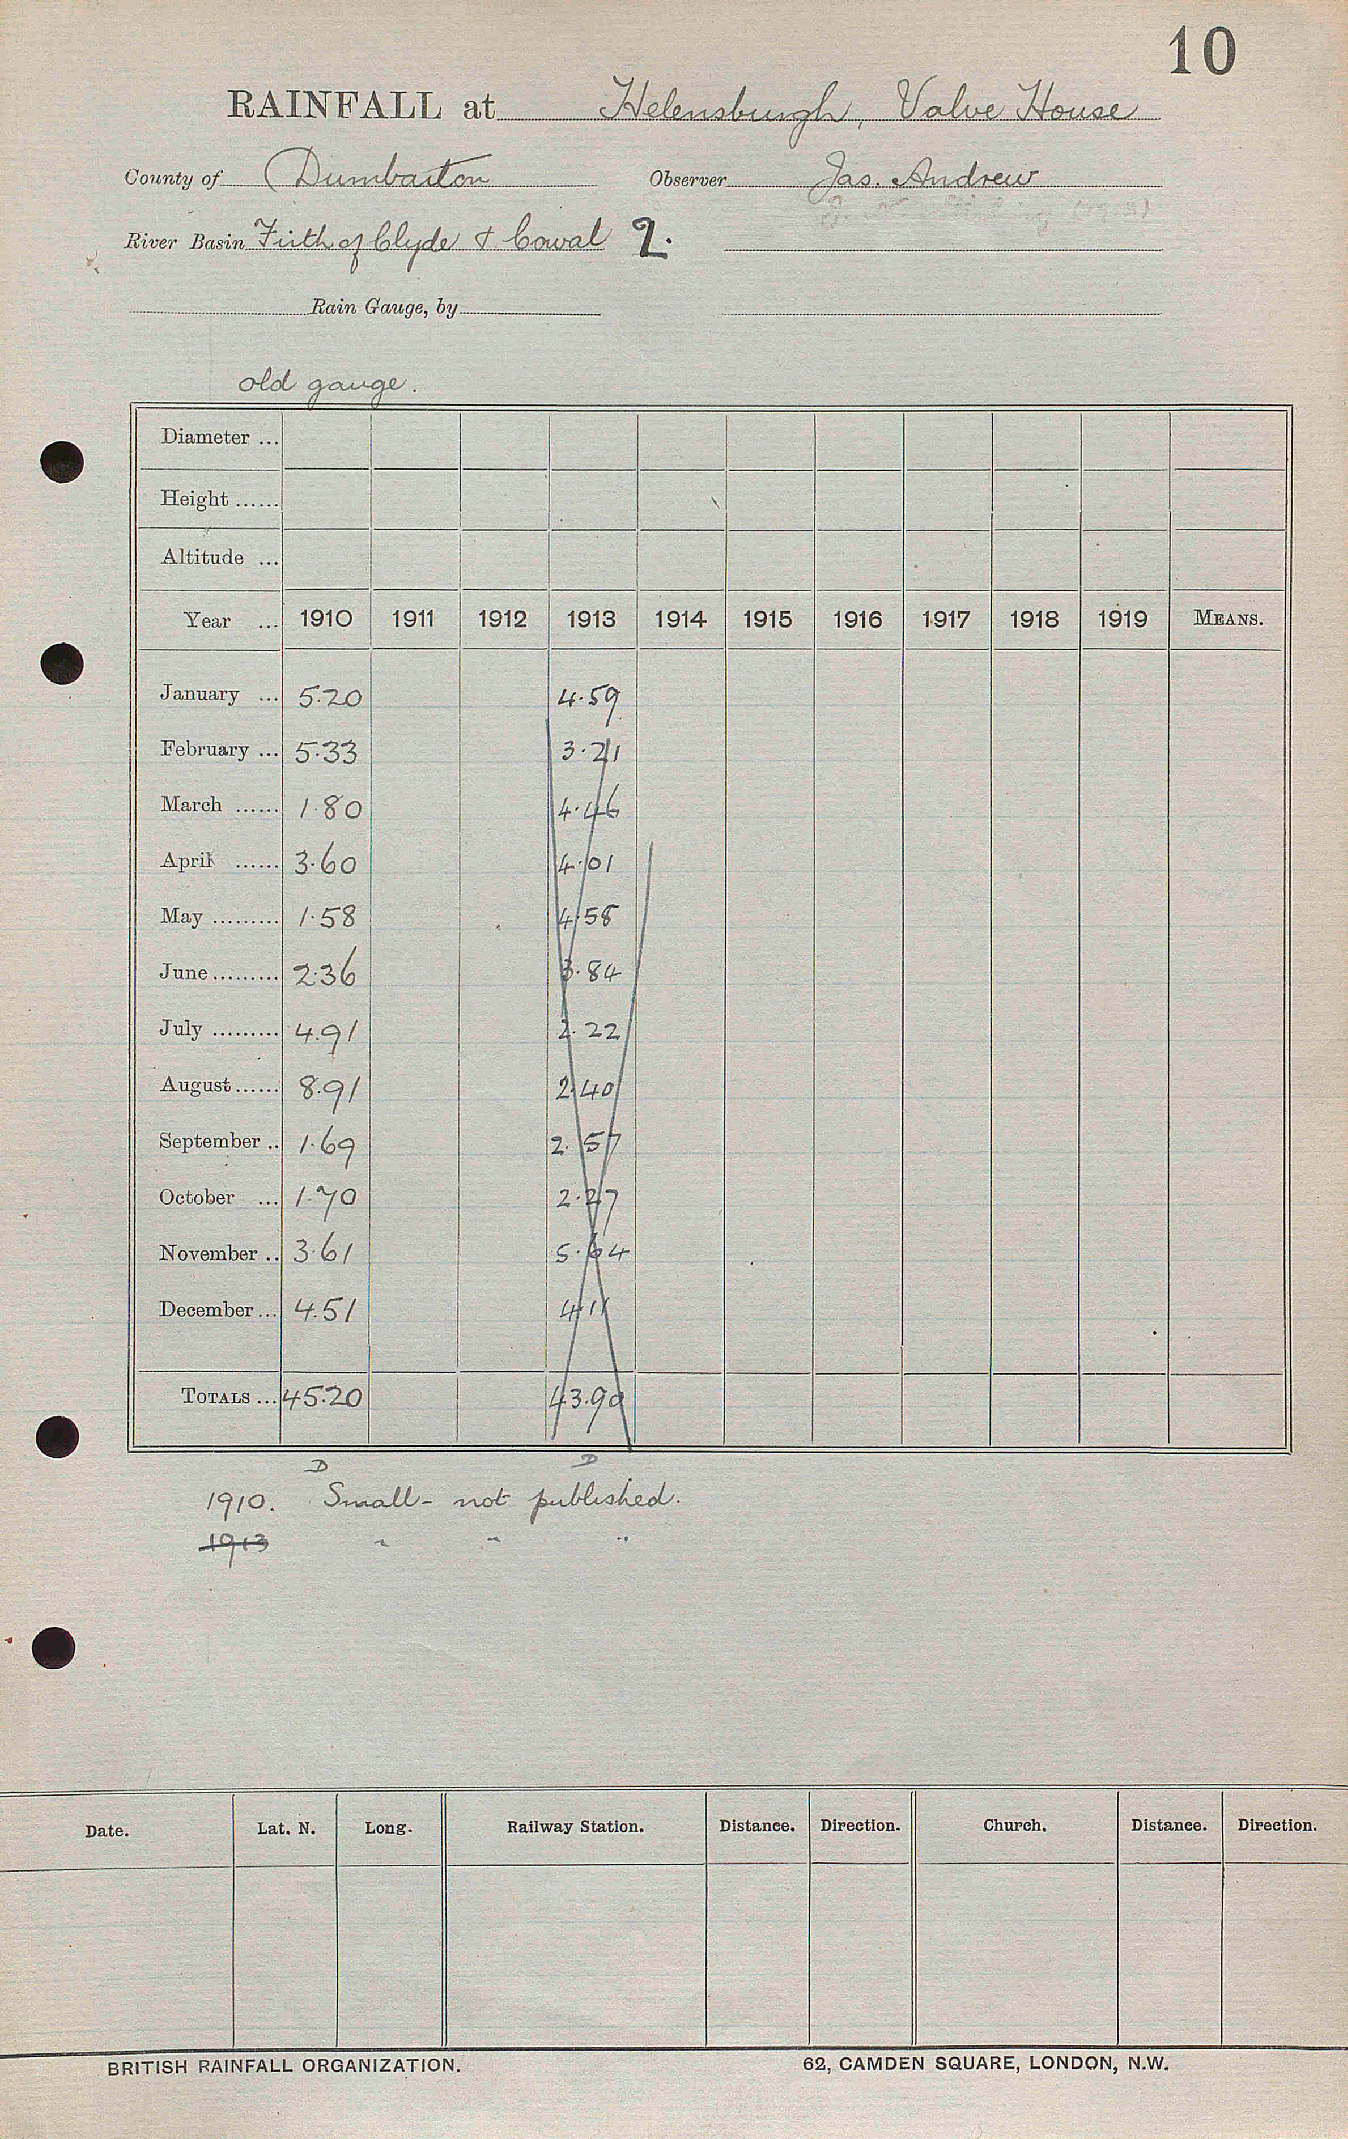 10
RAINFALL at Helensburgh, Valve House
County of Dumbarton Observer Jas. Andrew
River Basin Firth of Clyde & Cowal 2.
Rain Gauge, by
old gauge.
Diameter ...
Height ......
Altitude ...
Year ... 1910 1911 1912 1913 1914 1915 1916 1917 1918 1919 MEANS.
January ... 5.20 4.59
February ... 5.33 3.21
March ...... 1.80 4.46
April ...... 3.60 4.01
May ......... 1.58 4.58
June ......... 2.36 3.84
July ......... 4.91 2.22
August ...... 8.91 2.40
September .. 1.69 2.57
October ... 1.70 2.27
November .. 3.61 5.64
December ... 4.51 4.11
TOTALS ... 45.20 43.90
D D
1910. Small - not published.
1913 " " "
Date. Lat. N. Long. Railway Station. Distance. Direction. Church. Distance. Direction.
BRITISH RAINFALL ORGANIZATION. 62, CAMDEN SQUARE, LONDON, N.W.